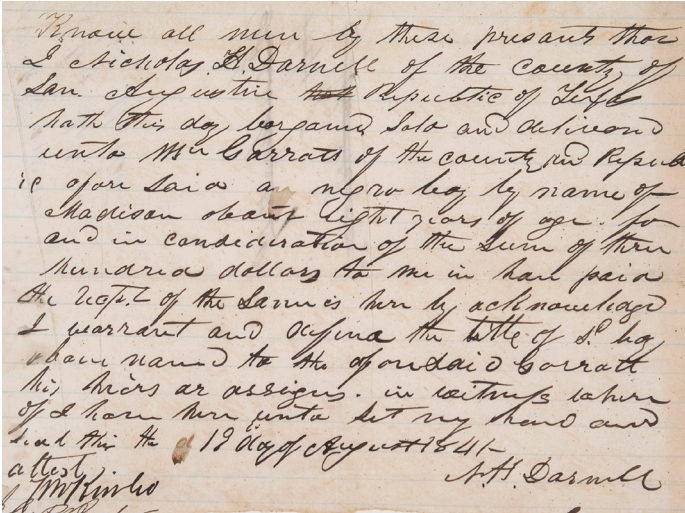 Know all men by these presants that
I Nicholas H Darnell of the county of
San Augustine Republic of Texas
hath this day borgand Sold and delivered
unto Wm Garratt of the county and Repub
ic afore Said a negro boy by name of
Madison about eight years of age. for
and in consideration of the sum of three
hundred dollars to me in han paid
the recpt of the Same is here by acknowledged
I warrant and defind the title of sd boy
above named to the aforesaid Garratt
his hiers or assigns. in witness where
of I have here unto Set my hand and
seal this the 18 day of August 1841-
attest N. H. Darnell